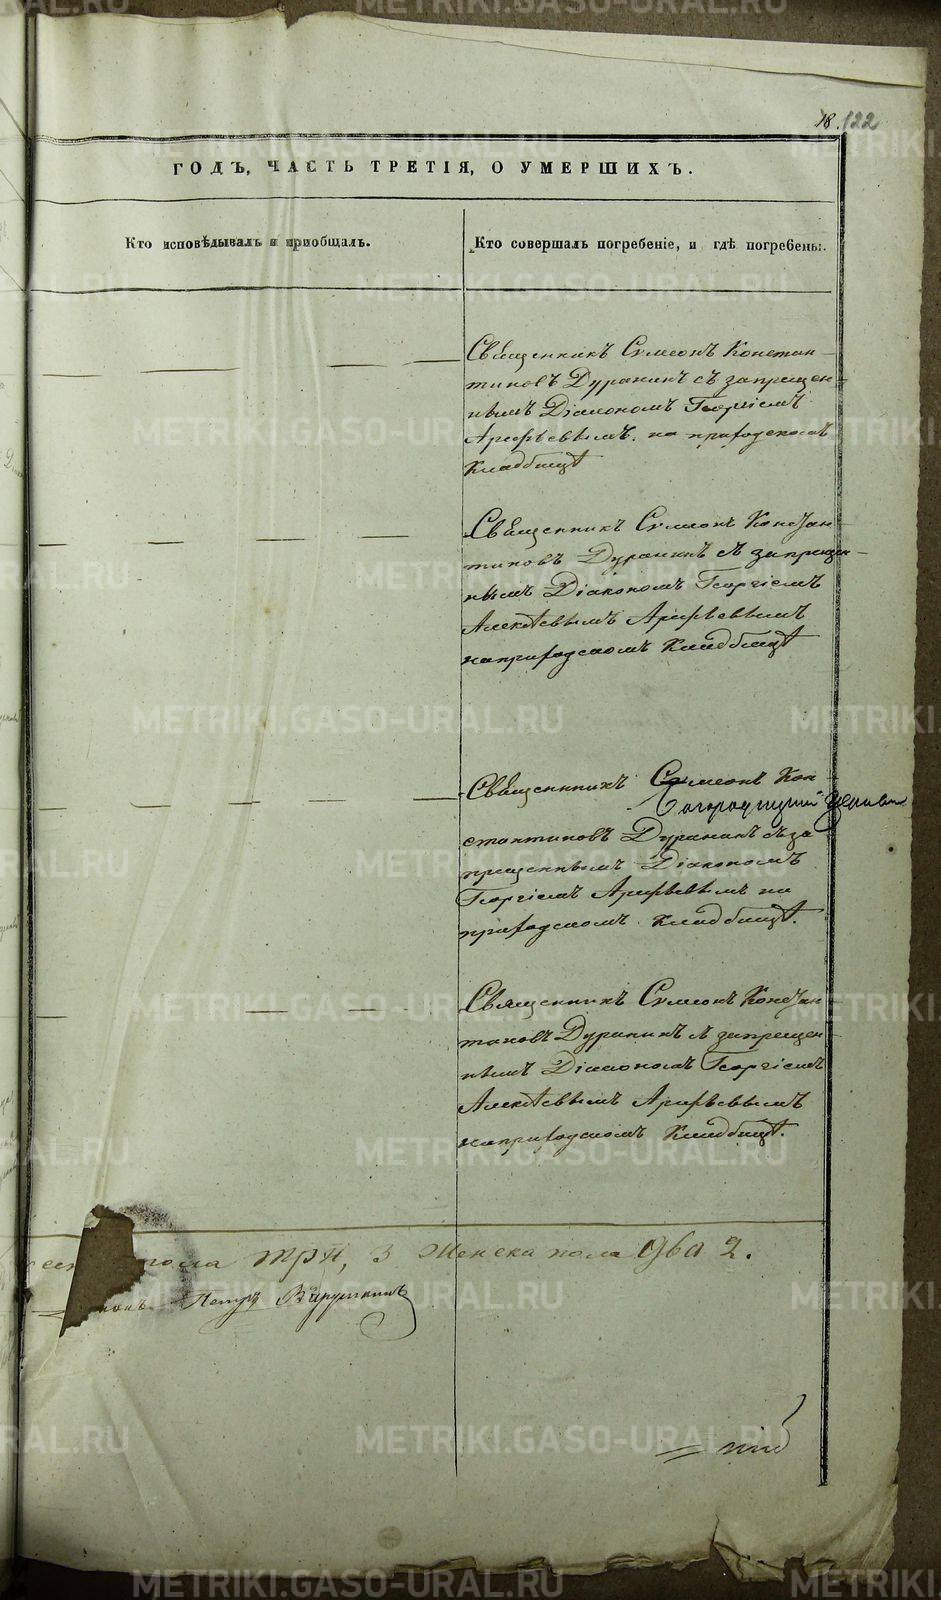 18. 122
ГОДЪ, ЧАСТЬ ТРЕТІЯ, О УМЕРШИХЪ.
Кто исповѣдывалъ и приобщалъ.
Кто совершалъ погребеніе, и гдѣ погребены.
Священникъ Сѵмеонъ Констан
тиновъ Дуракинъ съ запрещен
нымъ Діакономъ Георгіемъ
Арефьевымъ на приходскомъ
Кладбищѣ
Священникъ Сѵмеонъ Констан
тиновъ Дуракинъ съ запрещен
нымъ Діакономъ Георгіемъ
Алексѣевымъ Арефьевымъ
на приходскомъ Кладбищѣ
Священникъ Сѵмеонъ Кон
Богородицкой церкви
стантиновъ Дуракинъ съ за
прещеннымъ Діакономъ
Георгіемъ Арефьевымъ на
приходскомъ Кладбищѣ.
Священникъ Сѵмеонъ Констан
тиновъ Дуракинъ съ запрещен
нымъ Діакономъ Георгіемъ
Алексѣевымъ Арефьевымъ
на приходскомъ Кладбищѣ.
пола три, 3 Женска пола два 2.
Петръ
METRIKI.GASO-URAL.RU